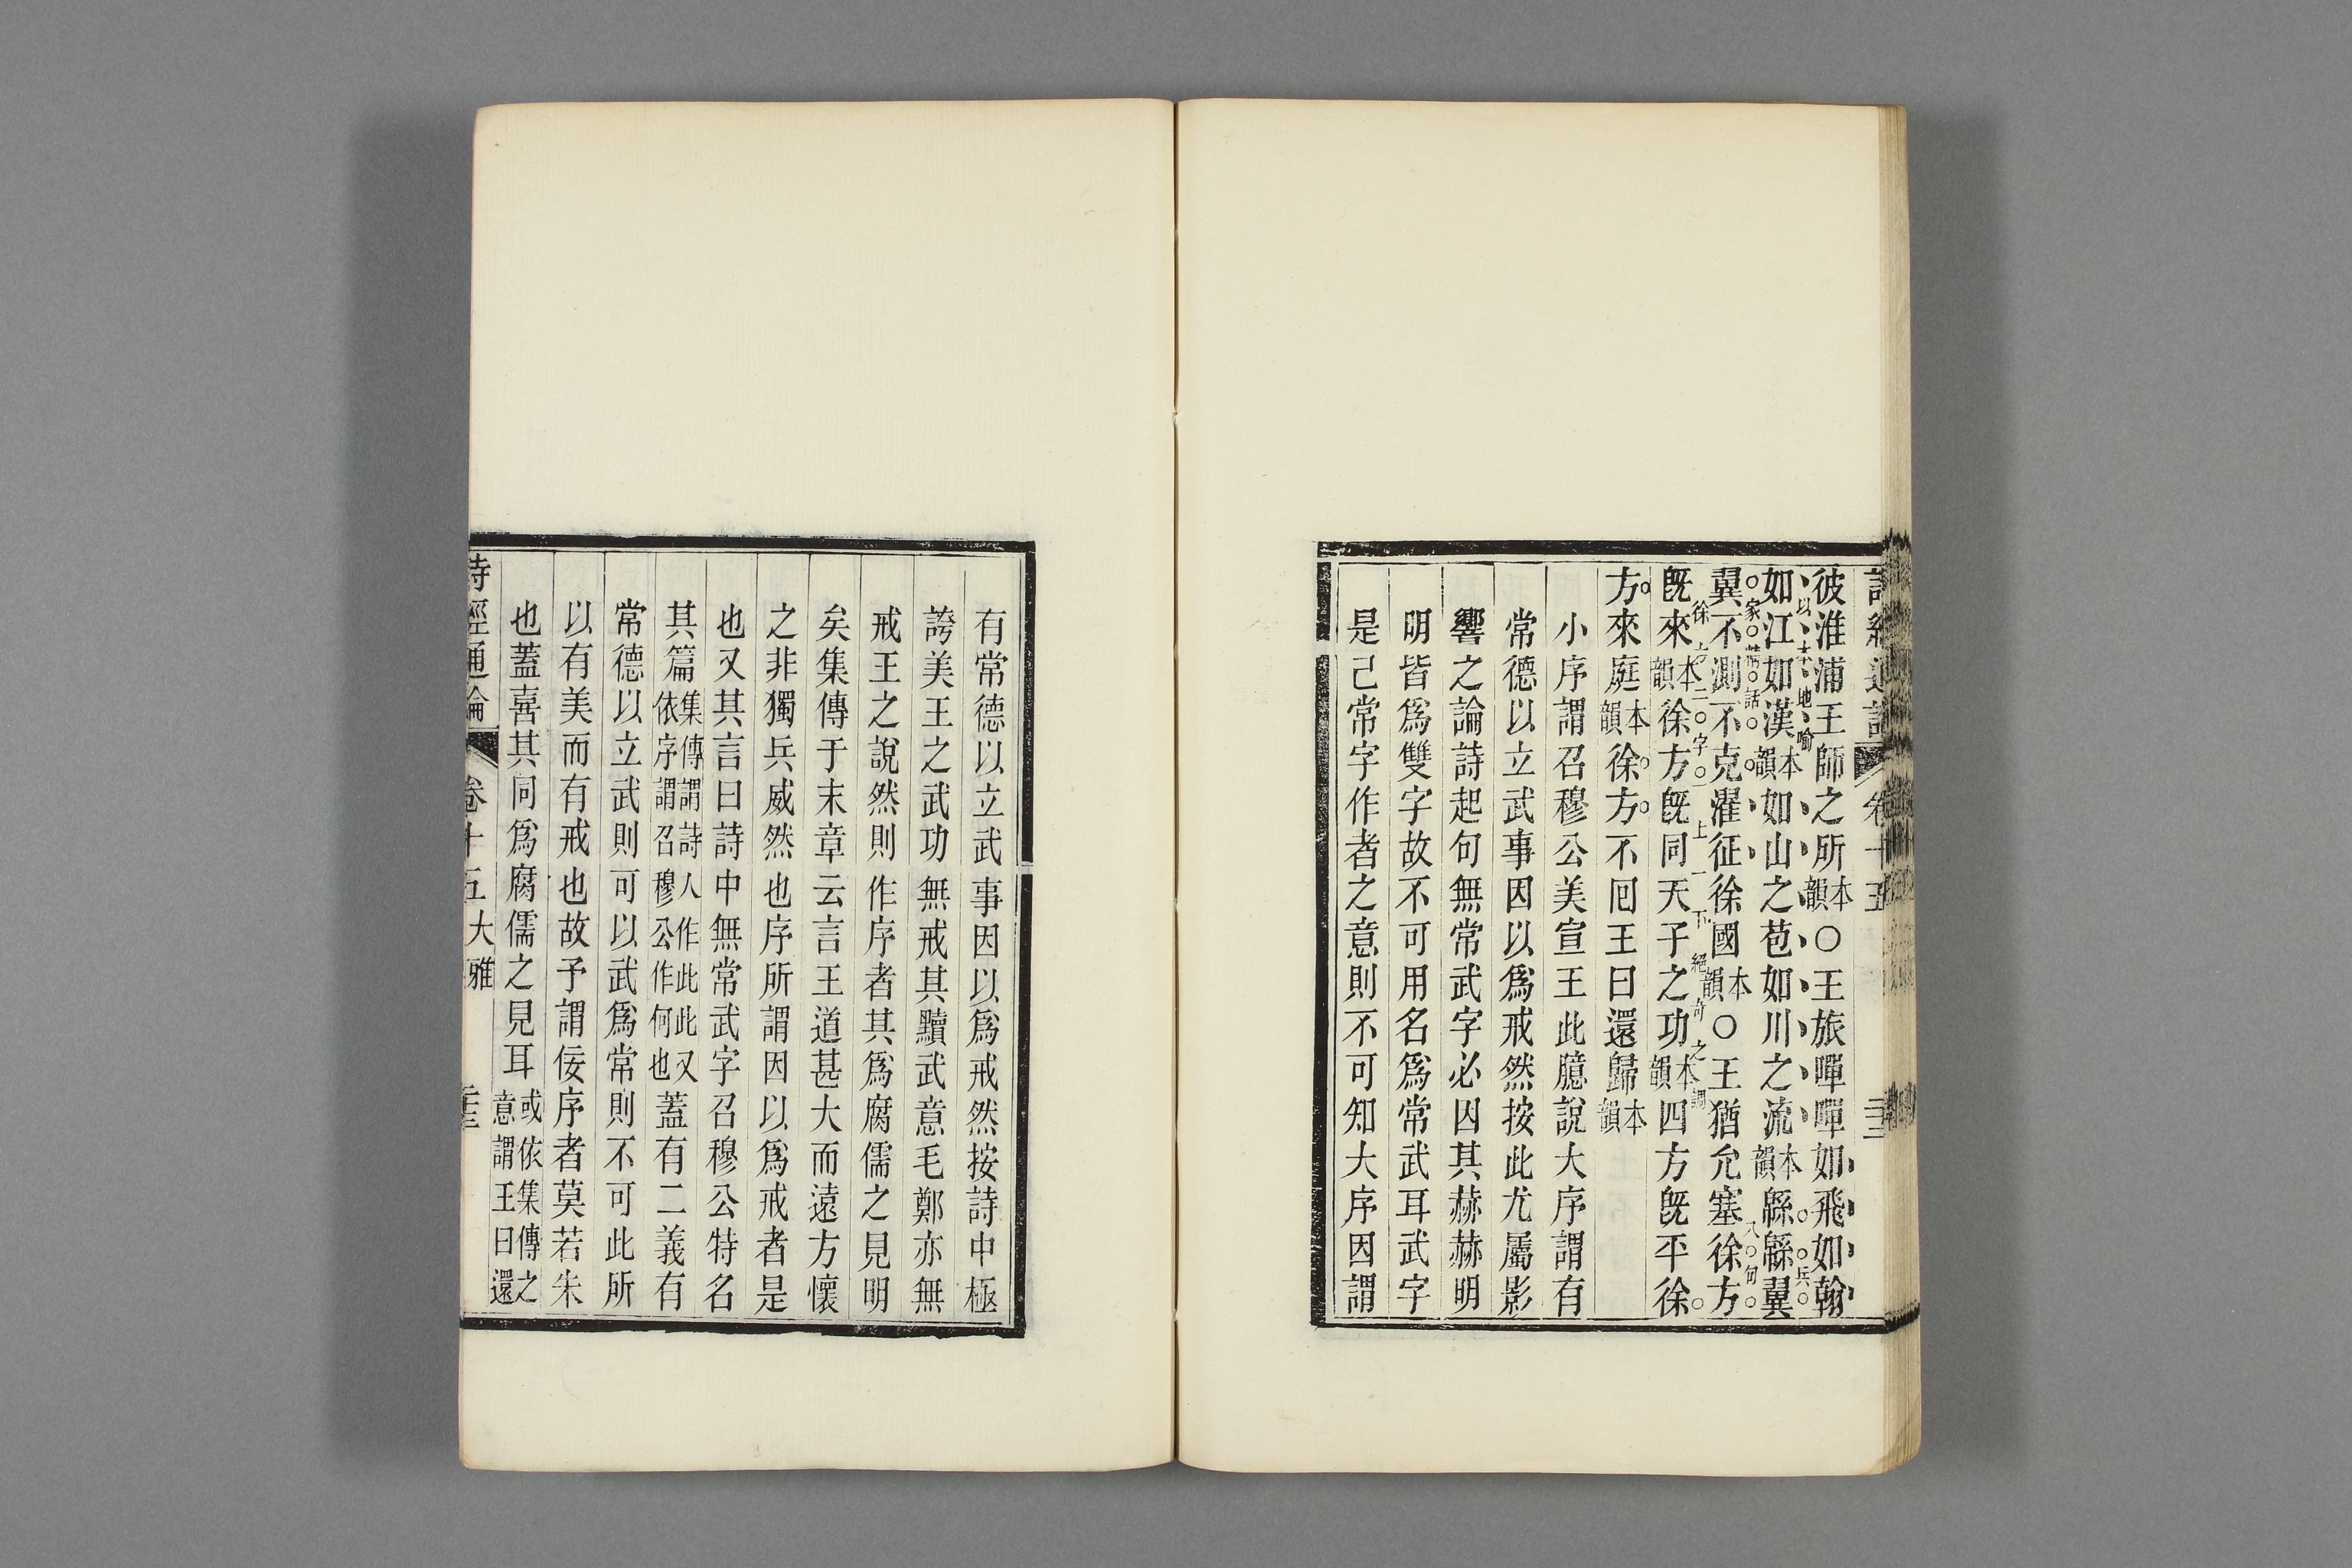 彼淮浦王師之所本韻○王旅嘽嘽如飛如翰
以本地喻
如江如漢本韻如山之苞如川之流本韻緜緜翼
翼不測不克濯征徐國本韻○王猶允塞徐方
既來本韻徐方既同天子之功本韻四方既平徐
方來庭本韻徐方不回王曰還歸本韻
小序謂召穆公美宣王此臆說大序謂有
常德以立武事因以爲戒然按此尤屬影
響之論詩起句無常武字必因其赫赫明
明皆爲雙字故不可用名爲常武耳武字
是已常字作者之意則不可知大序因謂
有常德以立武事因以爲戒然按詩中極
誇美王之武功無戒其黷武意毛鄭亦無
戒王之說然則作序者其爲腐儒之見明
矣集傳于末章云言王道甚大而遠方懷
之非獨兵威然也序所謂因以爲戒者是
也又其言曰詩中無常武字召穆公特名
其篇集傳謂詩人作此此又依序謂召穆公作何也蓋有二義有
常德以立武則可以武爲常則不可此所
以有美而有戒也故予謂佞序者莫若朱
也蓋喜其同爲腐儒之見耳或依集傳之意謂王曰還
詩經通論 卷十五 大雅